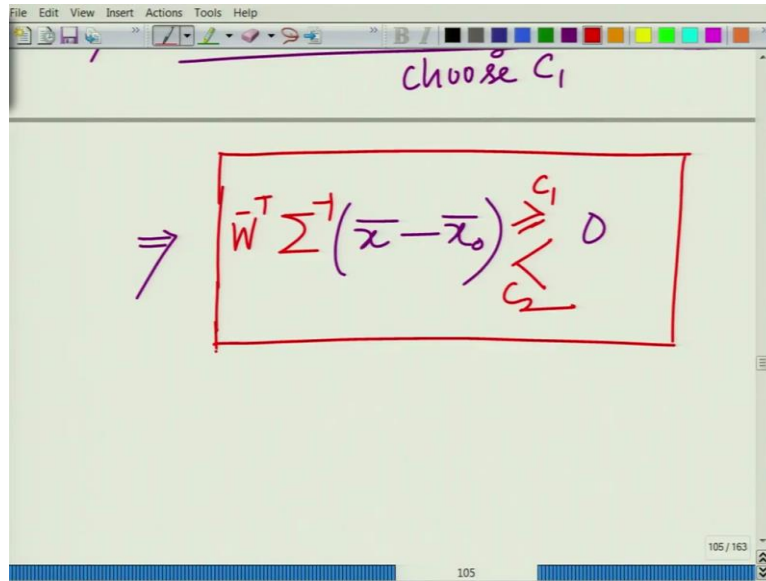 File Edit View Insert Actions Tools Help
B I
choose C₁
⇒ w̄ᵀ Σ⁻¹ (x̄ − x̄₀) ≥ C₁ < C₂ 0
105 / 163
105